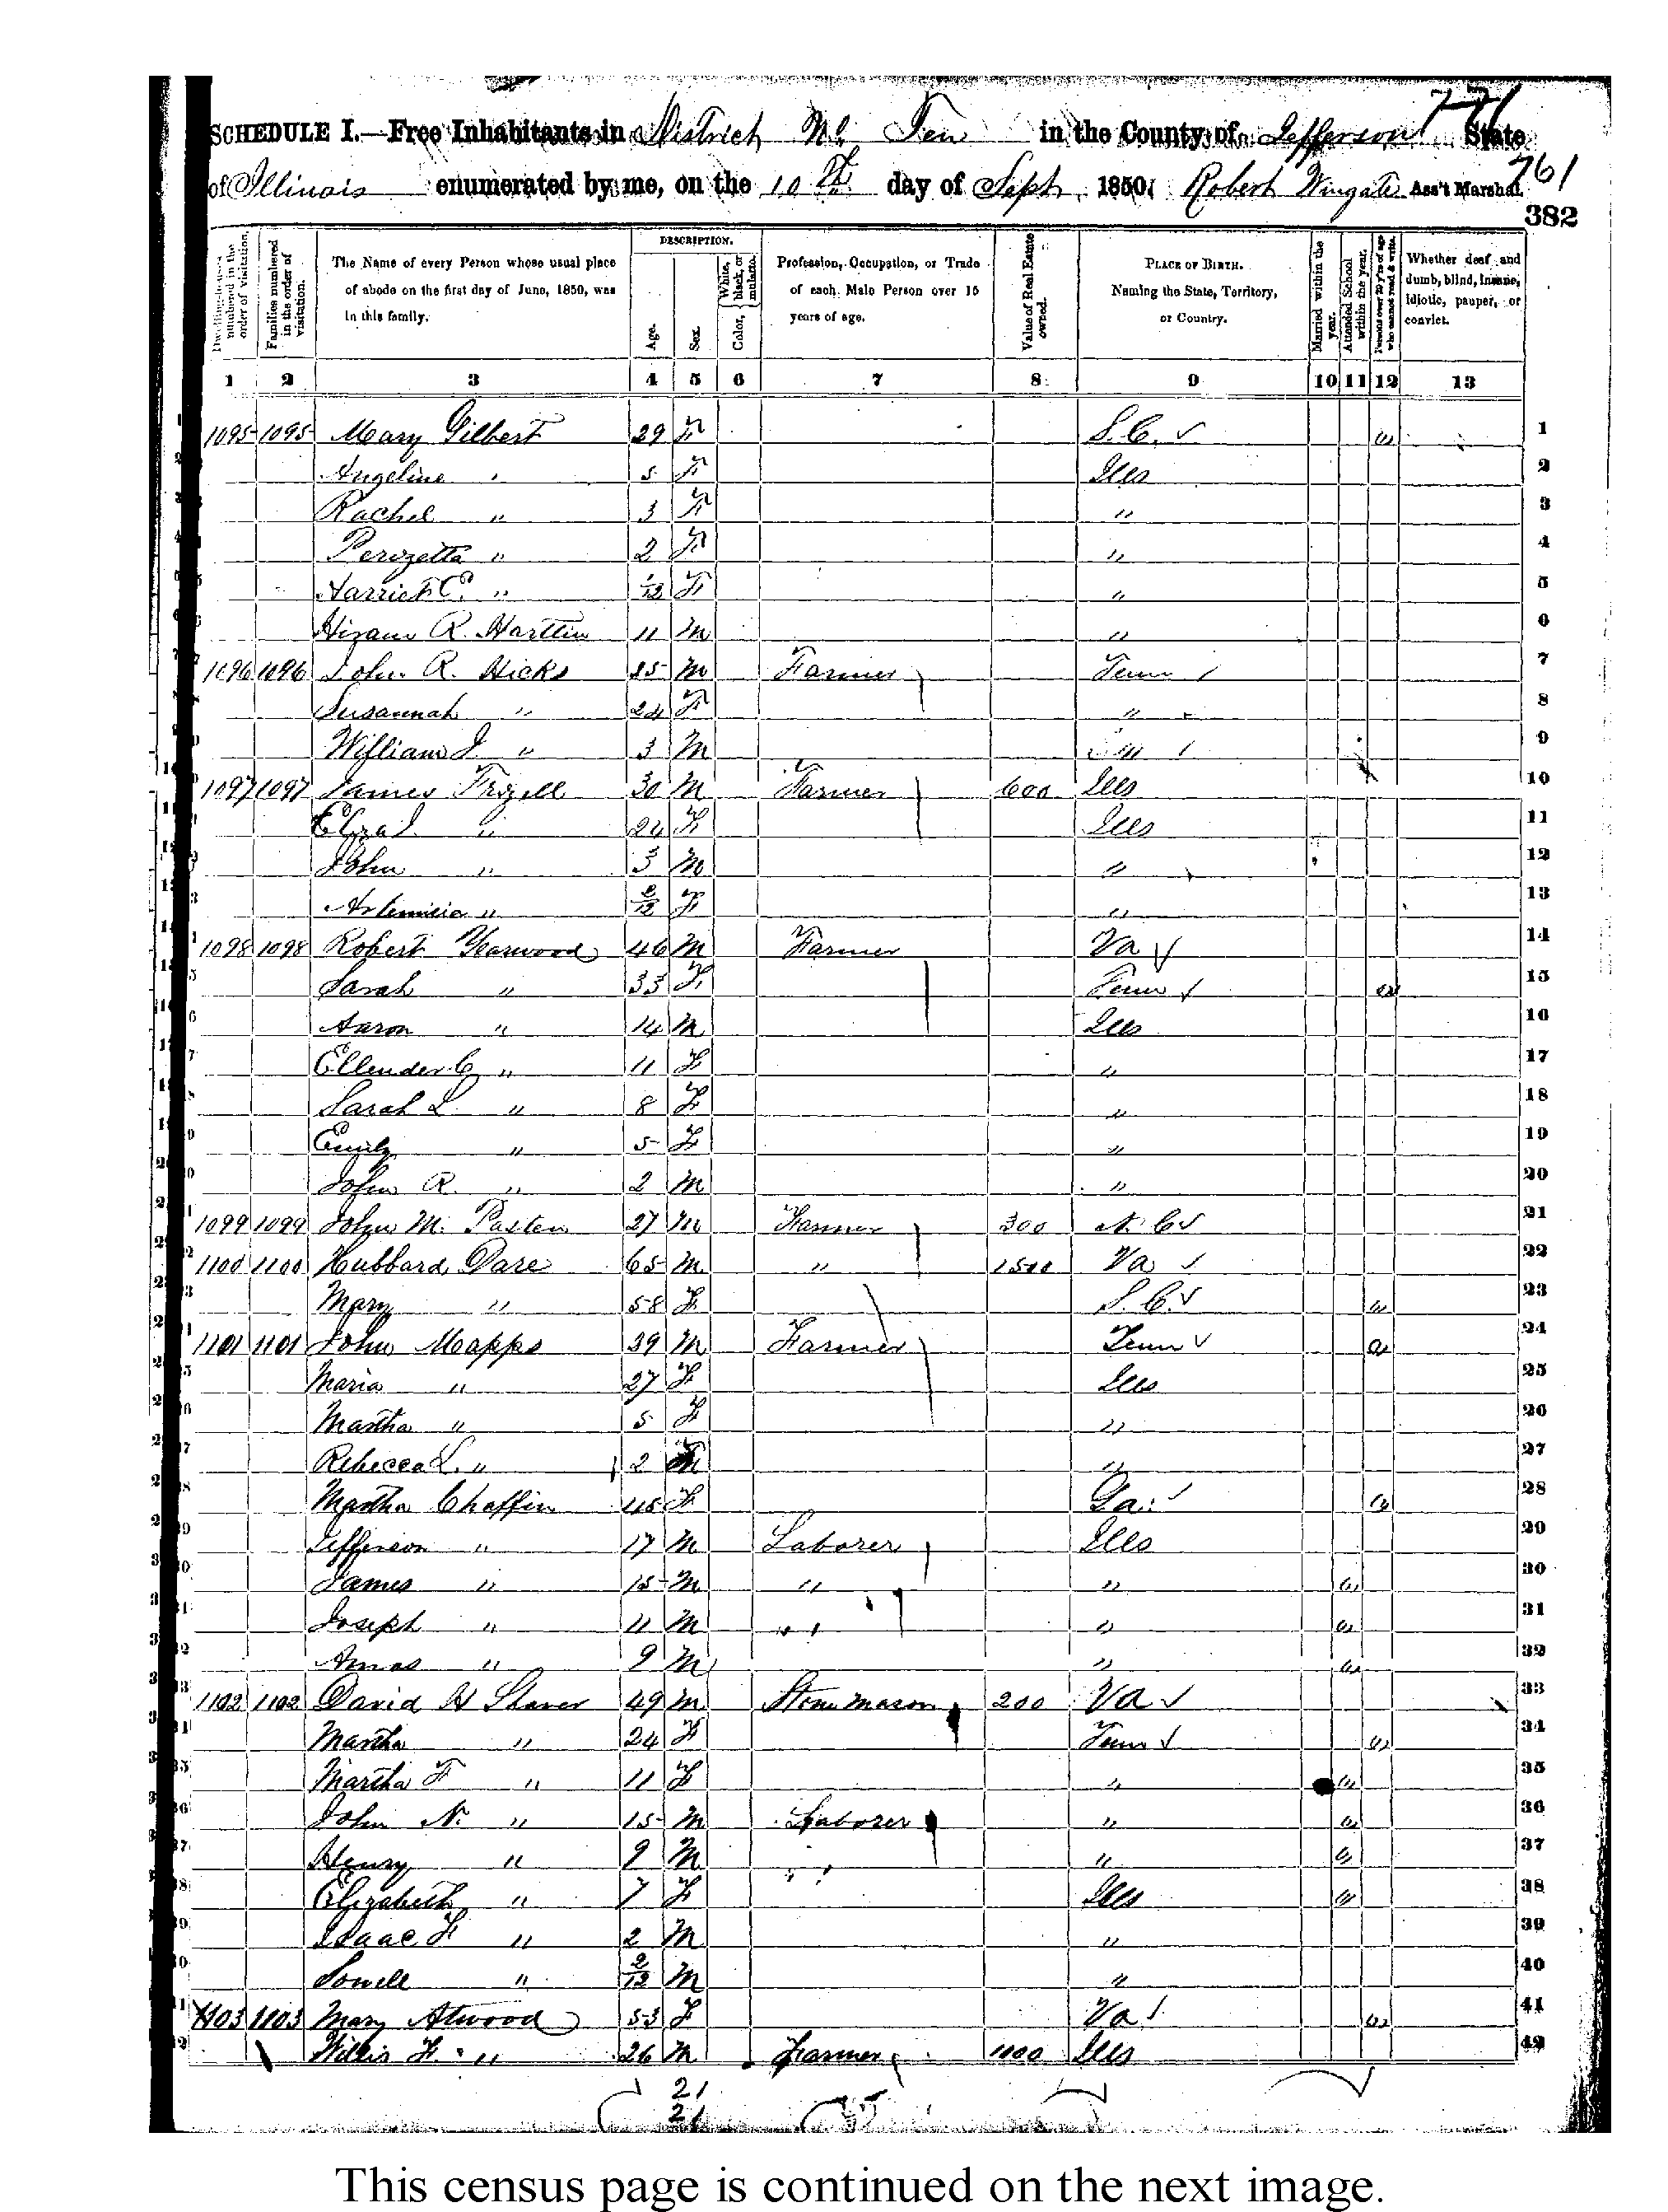 771
SCHEDULE I.—Free Inhabitants in District No. Ten in the County of Jefferson State
of Illinois enumerated by me, on the 10th day of Sept 1850. Robert Wingate Ass't Marshal.
761
382
Dwelling-houses numbered in the order of visitation.
Families numbered in the order of visitation.
The Name of every Person whose usual place of abode on the first day of June, 1850, was in this family.
DESCRIPTION.
Age.
Sex.
Color, White, black, or mulatto.
Profession, Occupation, or Trade of each Male Person over 15 years of age.
Value of Real Estate owned.
PLACE OF BIRTH. Naming the State, Territory, or Country.
Married within the year.
Attended School within the year.
Persons over 20 y'rs of age who cannot read & write.
Whether deaf and dumb, blind, insane, idiotic, pauper, or convict.
1 2 3 4 5 6 7 8 9 10 11 12 13
1 1095 1095 Mary Gilbert 29 F S.C. 1
Angeline " 5 F Ills 2
Rachel " 3 F " 3
Perozetta " 2 F " 4
Harriet C. " 1/12 F " 5
Hiram R. 11 M " 6
1096 1096 John R. Hicks 25 M Farmer Tenn 7
Susannah " 24 F " 8
William J " 3 M 9
1097 1097 James Frizell 30 M Farmer 600 Ills 10
Eliza J " 24 F Ills 11
John " 3 M " 12
Artemicia " 2/12 F " 13
1098 1098 Robert Yearwood 46 M Farmer Va 14
Sarah " 33 F Tenn 15
Aaron " 14 M Ills 16
Ellender C " 11 F " 17
Sarah L " 8 F " 18
Emily " 5 F " 19
John R. " 2 M " 20
1099 1099 John M. Paxten 27 M Farmer 300 N.C 21
1100 1100 Hubbard Dare 65 M " 1500 Va 22
Mary " 58 F S.C. 23
1101 1101 John Mapps 39 M Farmer Tenn 24
Maria " 27 F Ills 25
Martha " 5 F " 26
Rebecca L. " 2 F " 27
Martha Chaffin 45 F Ga. 28
Jefferson " 17 M Laborer Ills 29
James " 15 M " " 30
Joseph " 11 M " " 31
Amos " 9 M " 32
1102 1102 David H Shaver 49 M Stone mason 200 Va 33
Martha " 24 F Tenn 34
Martha F " 11 F " 35
John N. " 15 M Laborer " 36
Henry " 9 M " 37
Elizabeth " 7 F Ills 38
Isaac F " 2 M " 39
Sowell " 2/12 M " 40
1103 1103 Mary Atwood 53 F Va 41
Willis F. " 26 M Farmer 1100 Ills 42
21
21
This census page is continued on the next image.